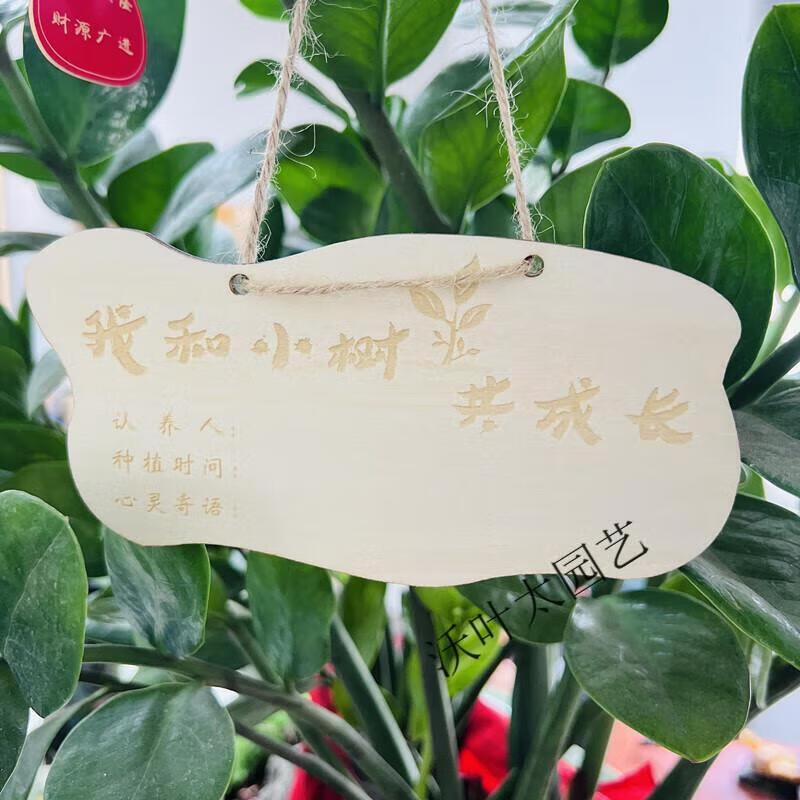 财源广进
我和小树
共成长
认养人：
种植时间：
心灵寄语：
沃叶太园艺